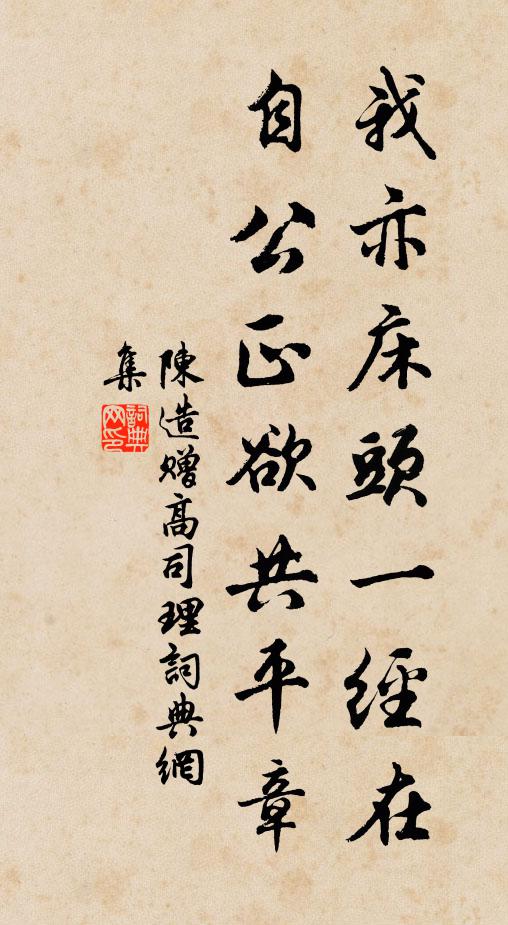 我亦床頭一經在
自公正欲共平章
陳造贈高司理詞典網
集
詞典网印